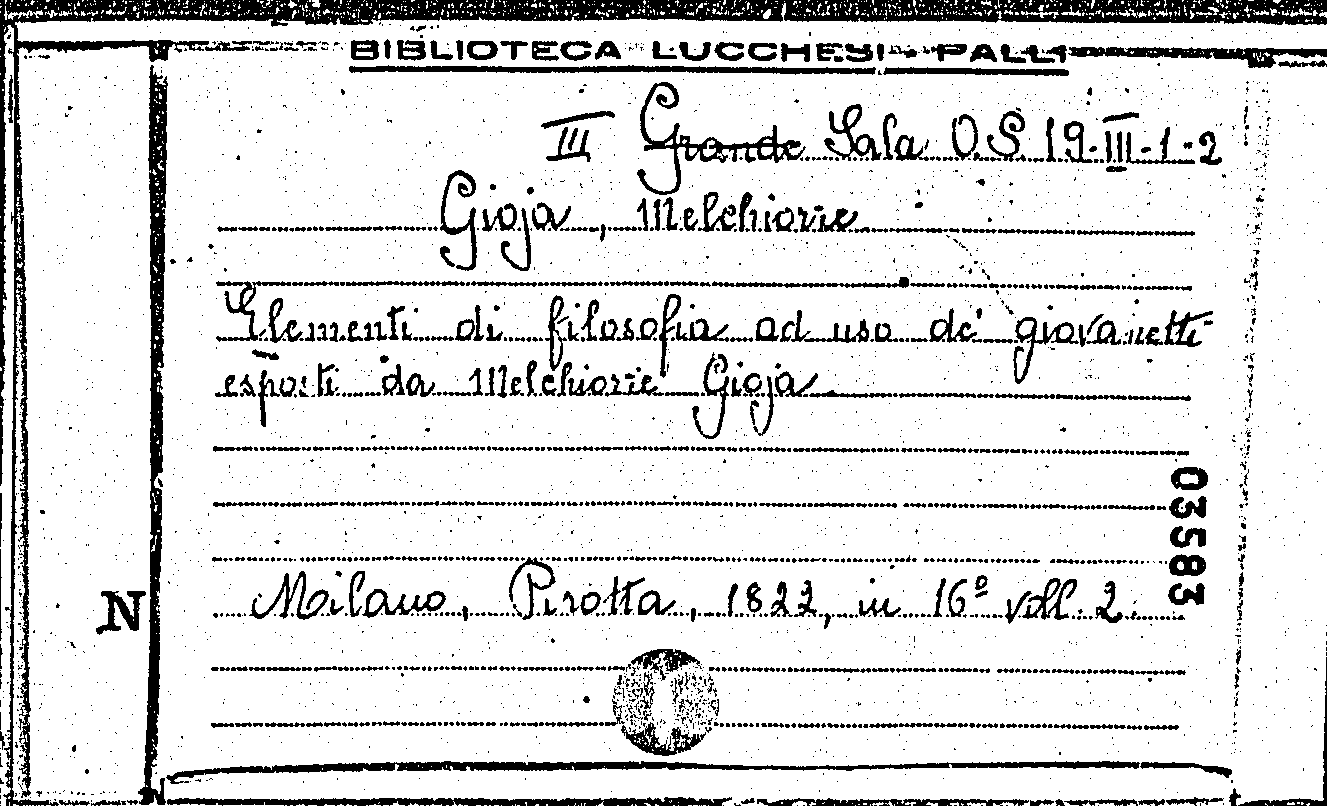 BIBLIOTECA LUCCHESI - PALLI
III Grande Sala O.S 19.III-1-2
Gioja, Melchiorre
Elementi di filosofia ad uso de' giovanetti
esposti da Melchiorre Gioja.
03583
Milano, Pirotta, 1822, in 16º voll. 2.
N